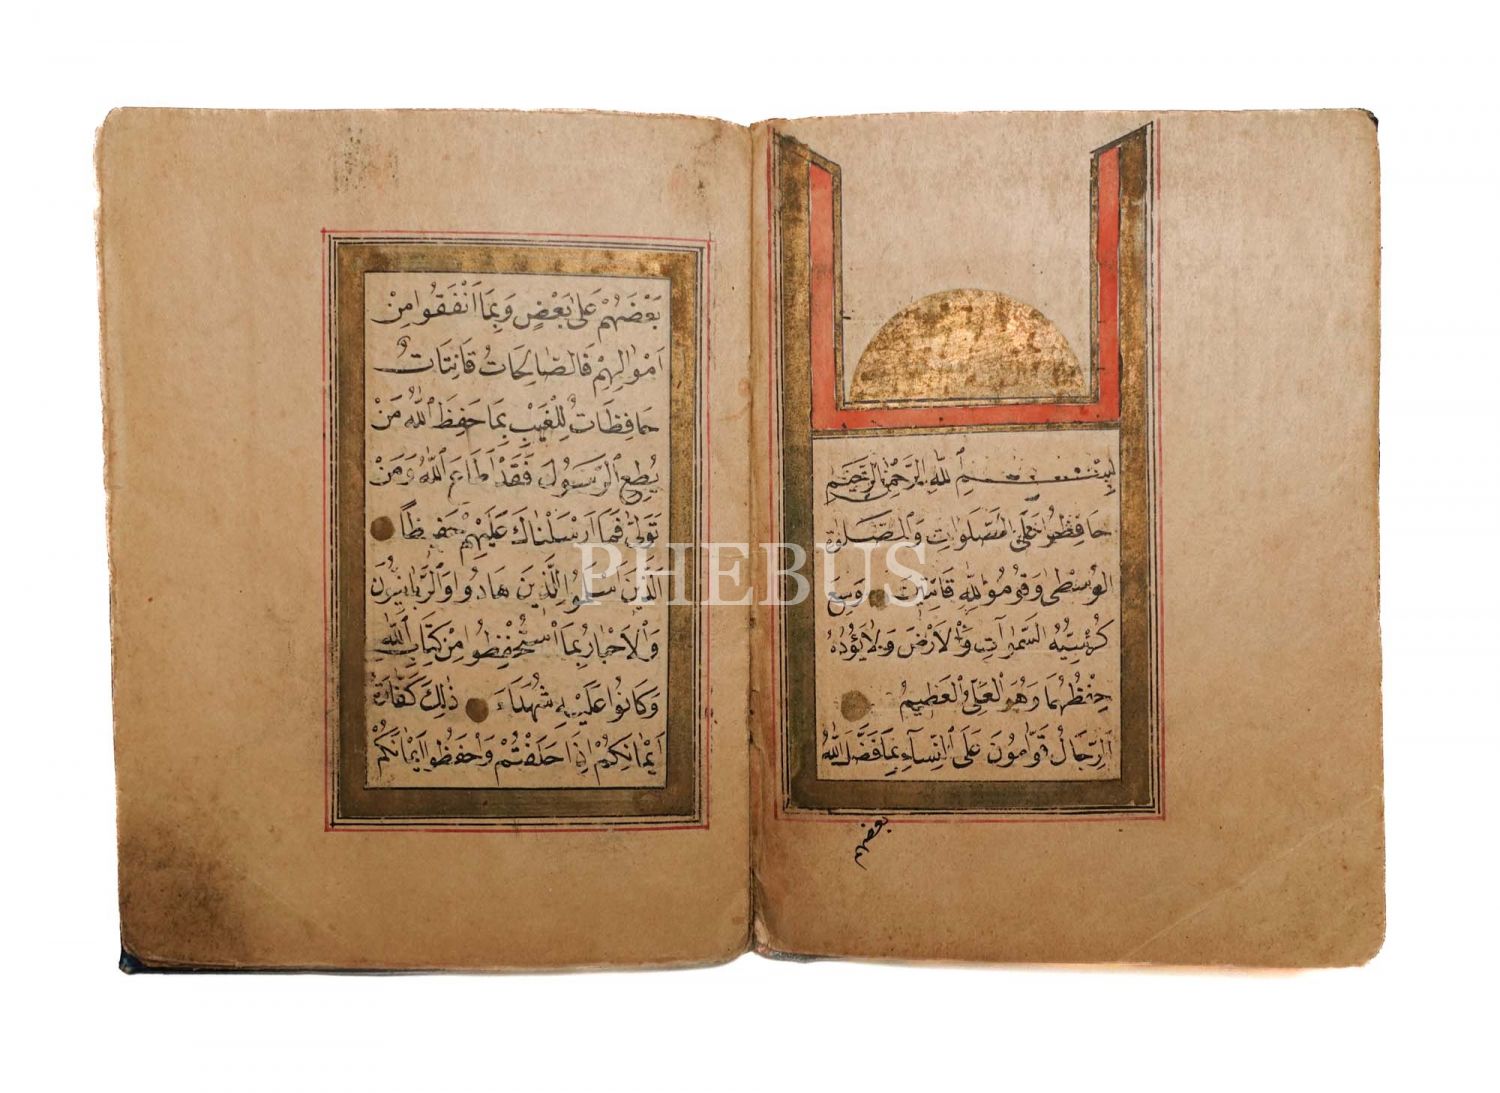 بِسْمِ اللهِ الرَّحْمٰنِ الرَّحِيمِ
حَافِظُوا عَلَى الصَّلَوَاتِ وَالصَّلٰوةِ
الْوُسْطٰى وَقُومُوا لِلّٰهِ قَانِتِينَ وَسِعَ
كُرْسِيُّهُ السَّمٰوَاتِ وَالْاَرْضَ وَلَا يَؤُدُهُ
حِفْظُهُمَا وَهُوَ الْعَلِىُّ الْعَظِيمُ
اَلرِّجَالُ قَوَّامُونَ عَلَى النِّسَآءِ بِمَا فَضَّلَ اللّٰهُ
بعضهم
بَعْضَهُمْ عَلٰى بَعْضٍ وَبِمَا اَنْفَقُوا مِنْ
اَمْوَالِهِمْ فَالصَّالِحَاتُ قَانِتَاتٌ
حَافِظَاتٌ لِلْغَيْبِ بِمَا حَفِظَ اللّٰهُ مَنْ
يُطِعِ الرَّسُولَ فَقَدْ اَطَاعَ اللّٰهَ وَمَنْ
تَوَلّٰى فَمَا اَرْسَلْنَاكَ عَلَيْهِمْ حَفِيظًا
اَلَّذِينَ اَسْلَمُوا لِلَّذِينَ هَادُوا وَالرَّبَّانِيُّونَ
وَالْاَحْبَارُ بِمَا اسْتُحْفِظُوا مِنْ كِتَابِ اللّٰهِ
وَكَانُوا عَلَيْهِ شُهَدَاءَ ذٰلِكَ كَفَّارَةُ
اَيْمَانِكُمْ اِذَا حَلَفْتُمْ وَاحْفَظُوا اَيْمَانَكُمْ
PHEBUS